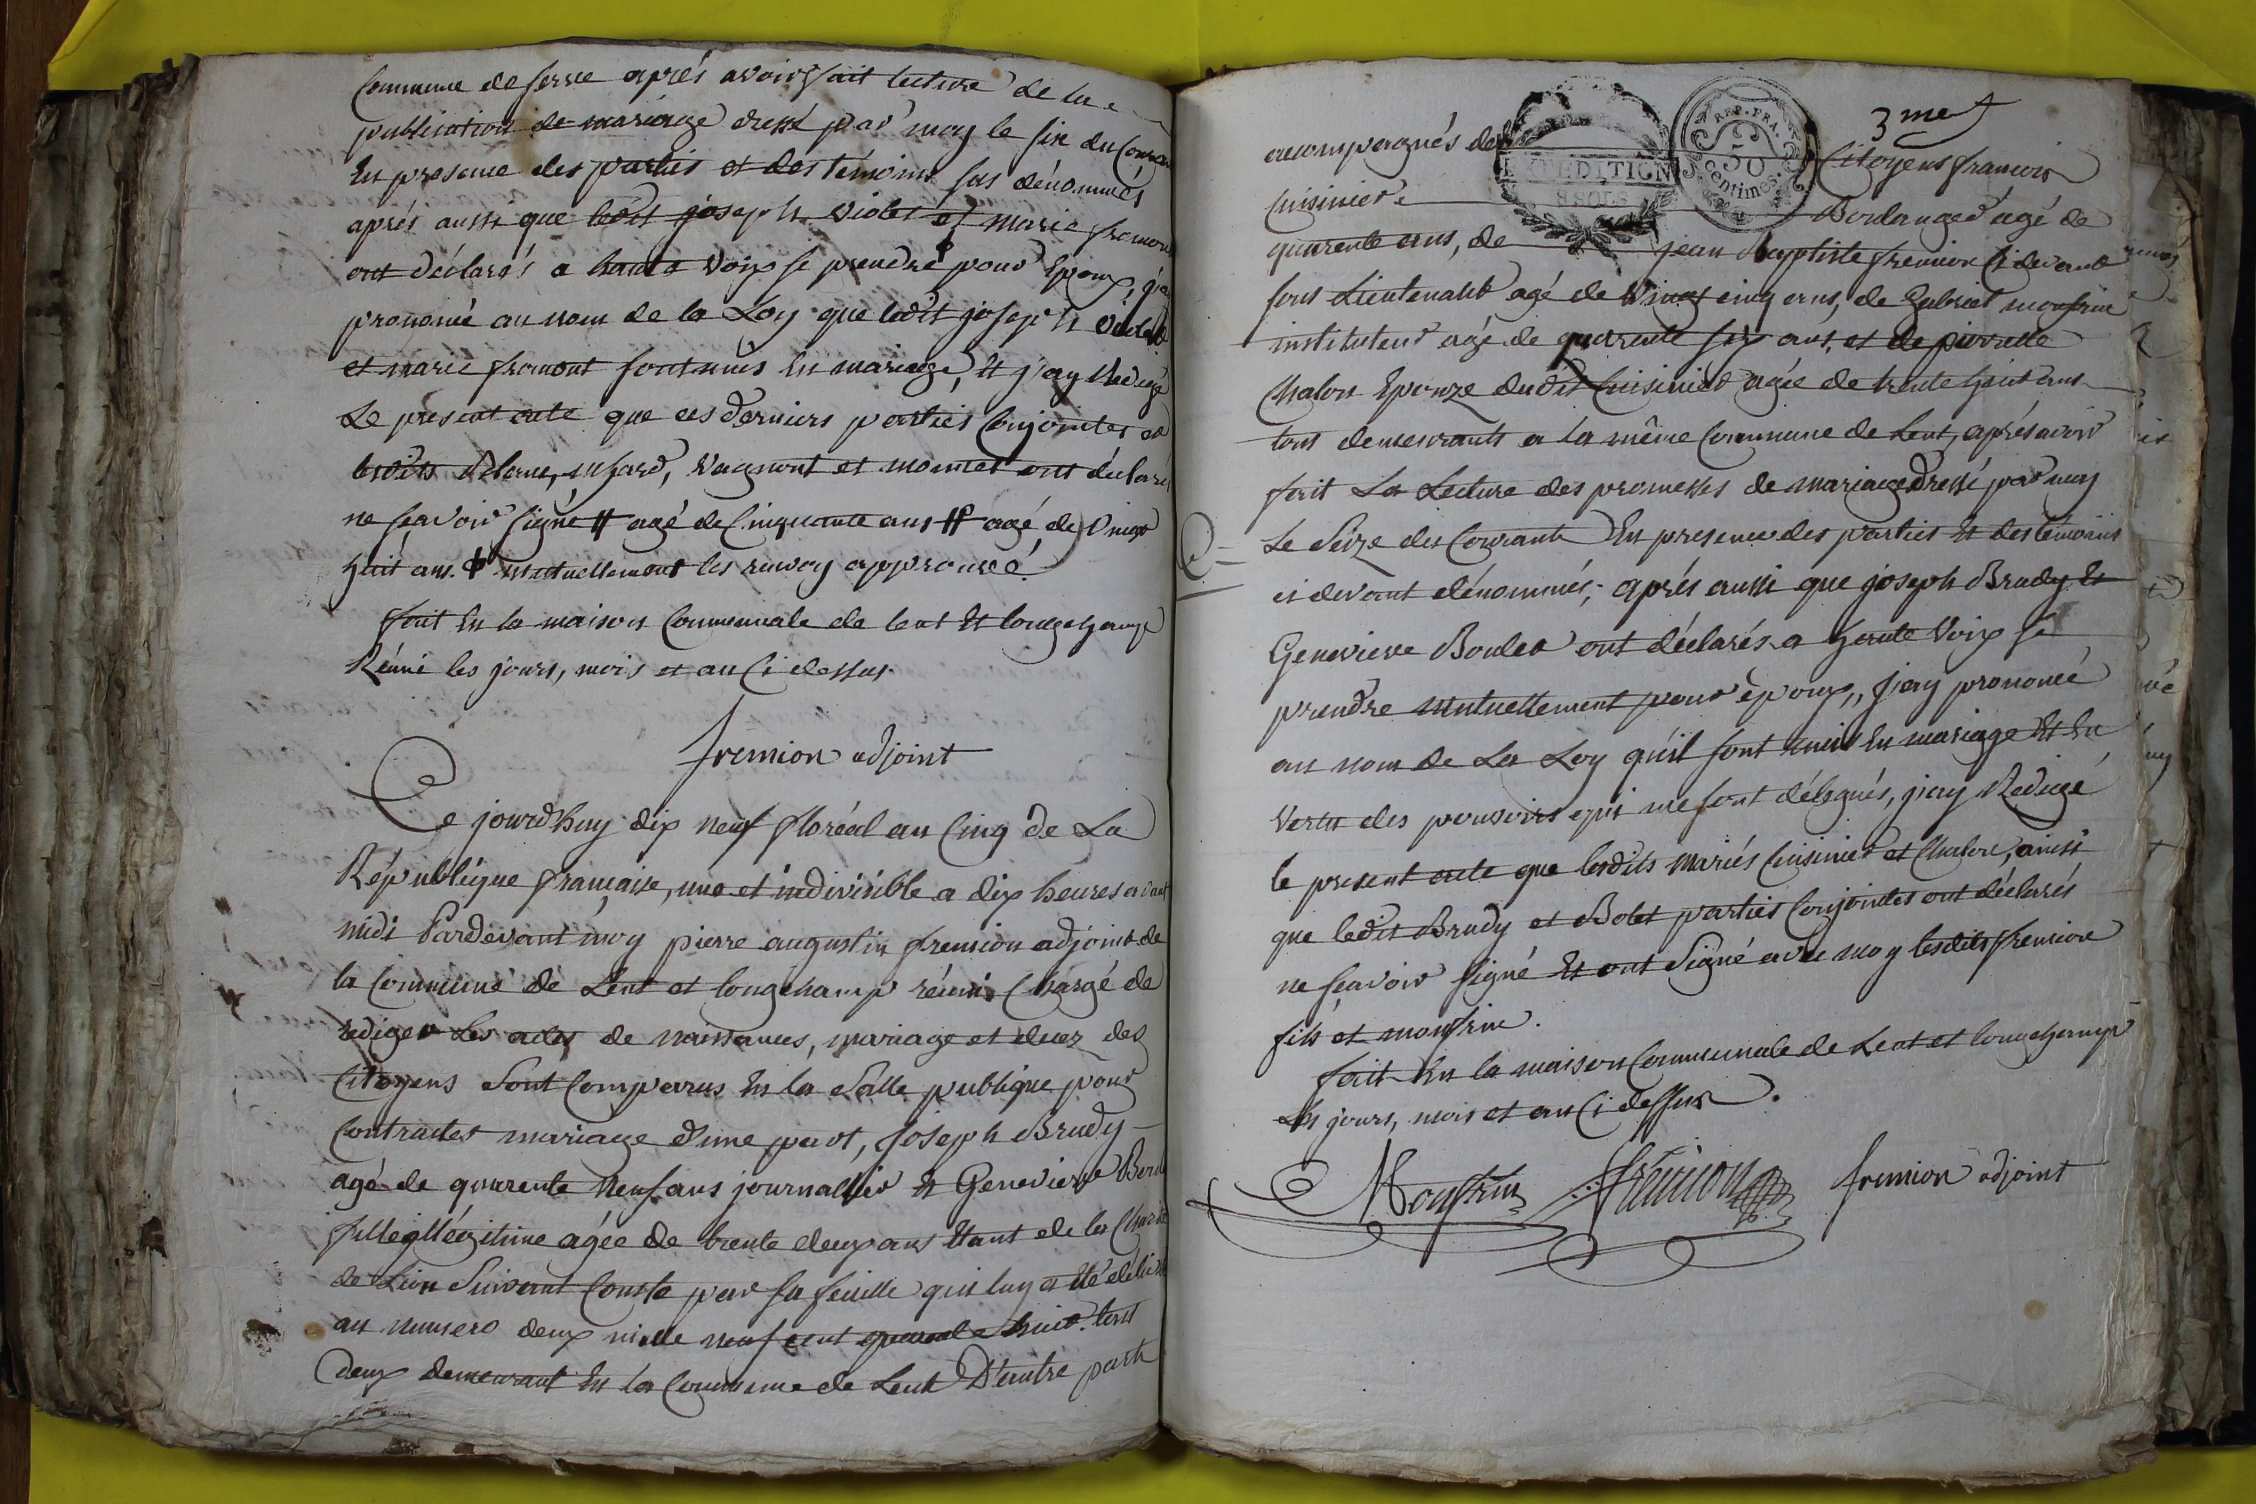 Commune de serve aprés avoir fait lecture de la
publication de mariage dressé par moy le six du Courant
En presence des parties et des témoins sus dénommés
aprés aussi que ledit joseph Violet et Marie fromont
ont déclarés a haute Voix se prendre pour Epoux, j'ay
prononcé au nom de la Loy que ledit joseph Violet
et marie fromont sont unis En mariage, Et j'ay Redigé
Le present acte que ces derniers parties Conjointes et
lesdits Vagnont et monnet ont déclaré
ne sçavoir signé # agé de Cinquante ans # agé de Vingt
huit ans. mutuellement les renvoy approuvé
fait En la maison Communale de lent Et longchamp
Réuni les jours, mois et an Ci dessus
fremion adjoint
Ce jourdhuy dix neuf floréal an Cinq de La
République française, une et indivisible a dix heures avant
midi Pardevant moy pierre augustin fremion adjoint de
la Commune de Lent et longchamp réunis Chargé de
rediger Les actes de naissances, mariage et decez des
Citoyens Sont Comparus En la Salle publique pour
Contracter mariage d'une part, Joseph Brudy
agé de quarente Neuf ans journallier Et Genevieve Boulet
fille illégitime agée de trente deux ans Etant de la Charité
de Lion Suivant Conste par sa feuille qui luy a Eté délivré
au numero deux mille neuf cent quarente huit. tous
deux demeurant En la Commune de Lent D'autre part
3me
acompagnés des Citoyens francois
Cuisinier Boulanger agé de
quarente ans, de jean Baptiste fremion Ci devant
sous Lieutenant agé de Vingt cinq ans, de Gabriel monfrin
instituteur agé de quarente six ans, et de pierrette
Chalon Epouze dudit Cuisinier agée de trente huit ans
tous demeurants a la même Commune de Lent, aprés avoir
fait La Lecture des promesses de mariage Dressé par moy
Le Seize du Courant En presence des parties Et des témoins
ci devant dénommés; aprés aussi que joseph Brudy Et
Genevieve Boulet ont déclarés a haute Voix se
prendre mutuellement pour époux,, j'ay prononcé
au nom de La Loy qu'il sont unis En mariage Et En
Vertu des pouvoirs qui me sont délegués, j'ay Redigé
le present acte que lesdits mariés Cuisinier et Chalon, ainsi
que ledit Brudy et Bolet parties Conjointes ont déclarés
ne sçavoir signé Et ont Signé avec moy lesdits fremion
fils et monfrin.
fait En la maison Communale de Lent et longchamp
Les jours, mois et an Ci dessus.
Monfrin fremion fremion adjoint
EXPEDITION
REP. FRA.
50
Centimes